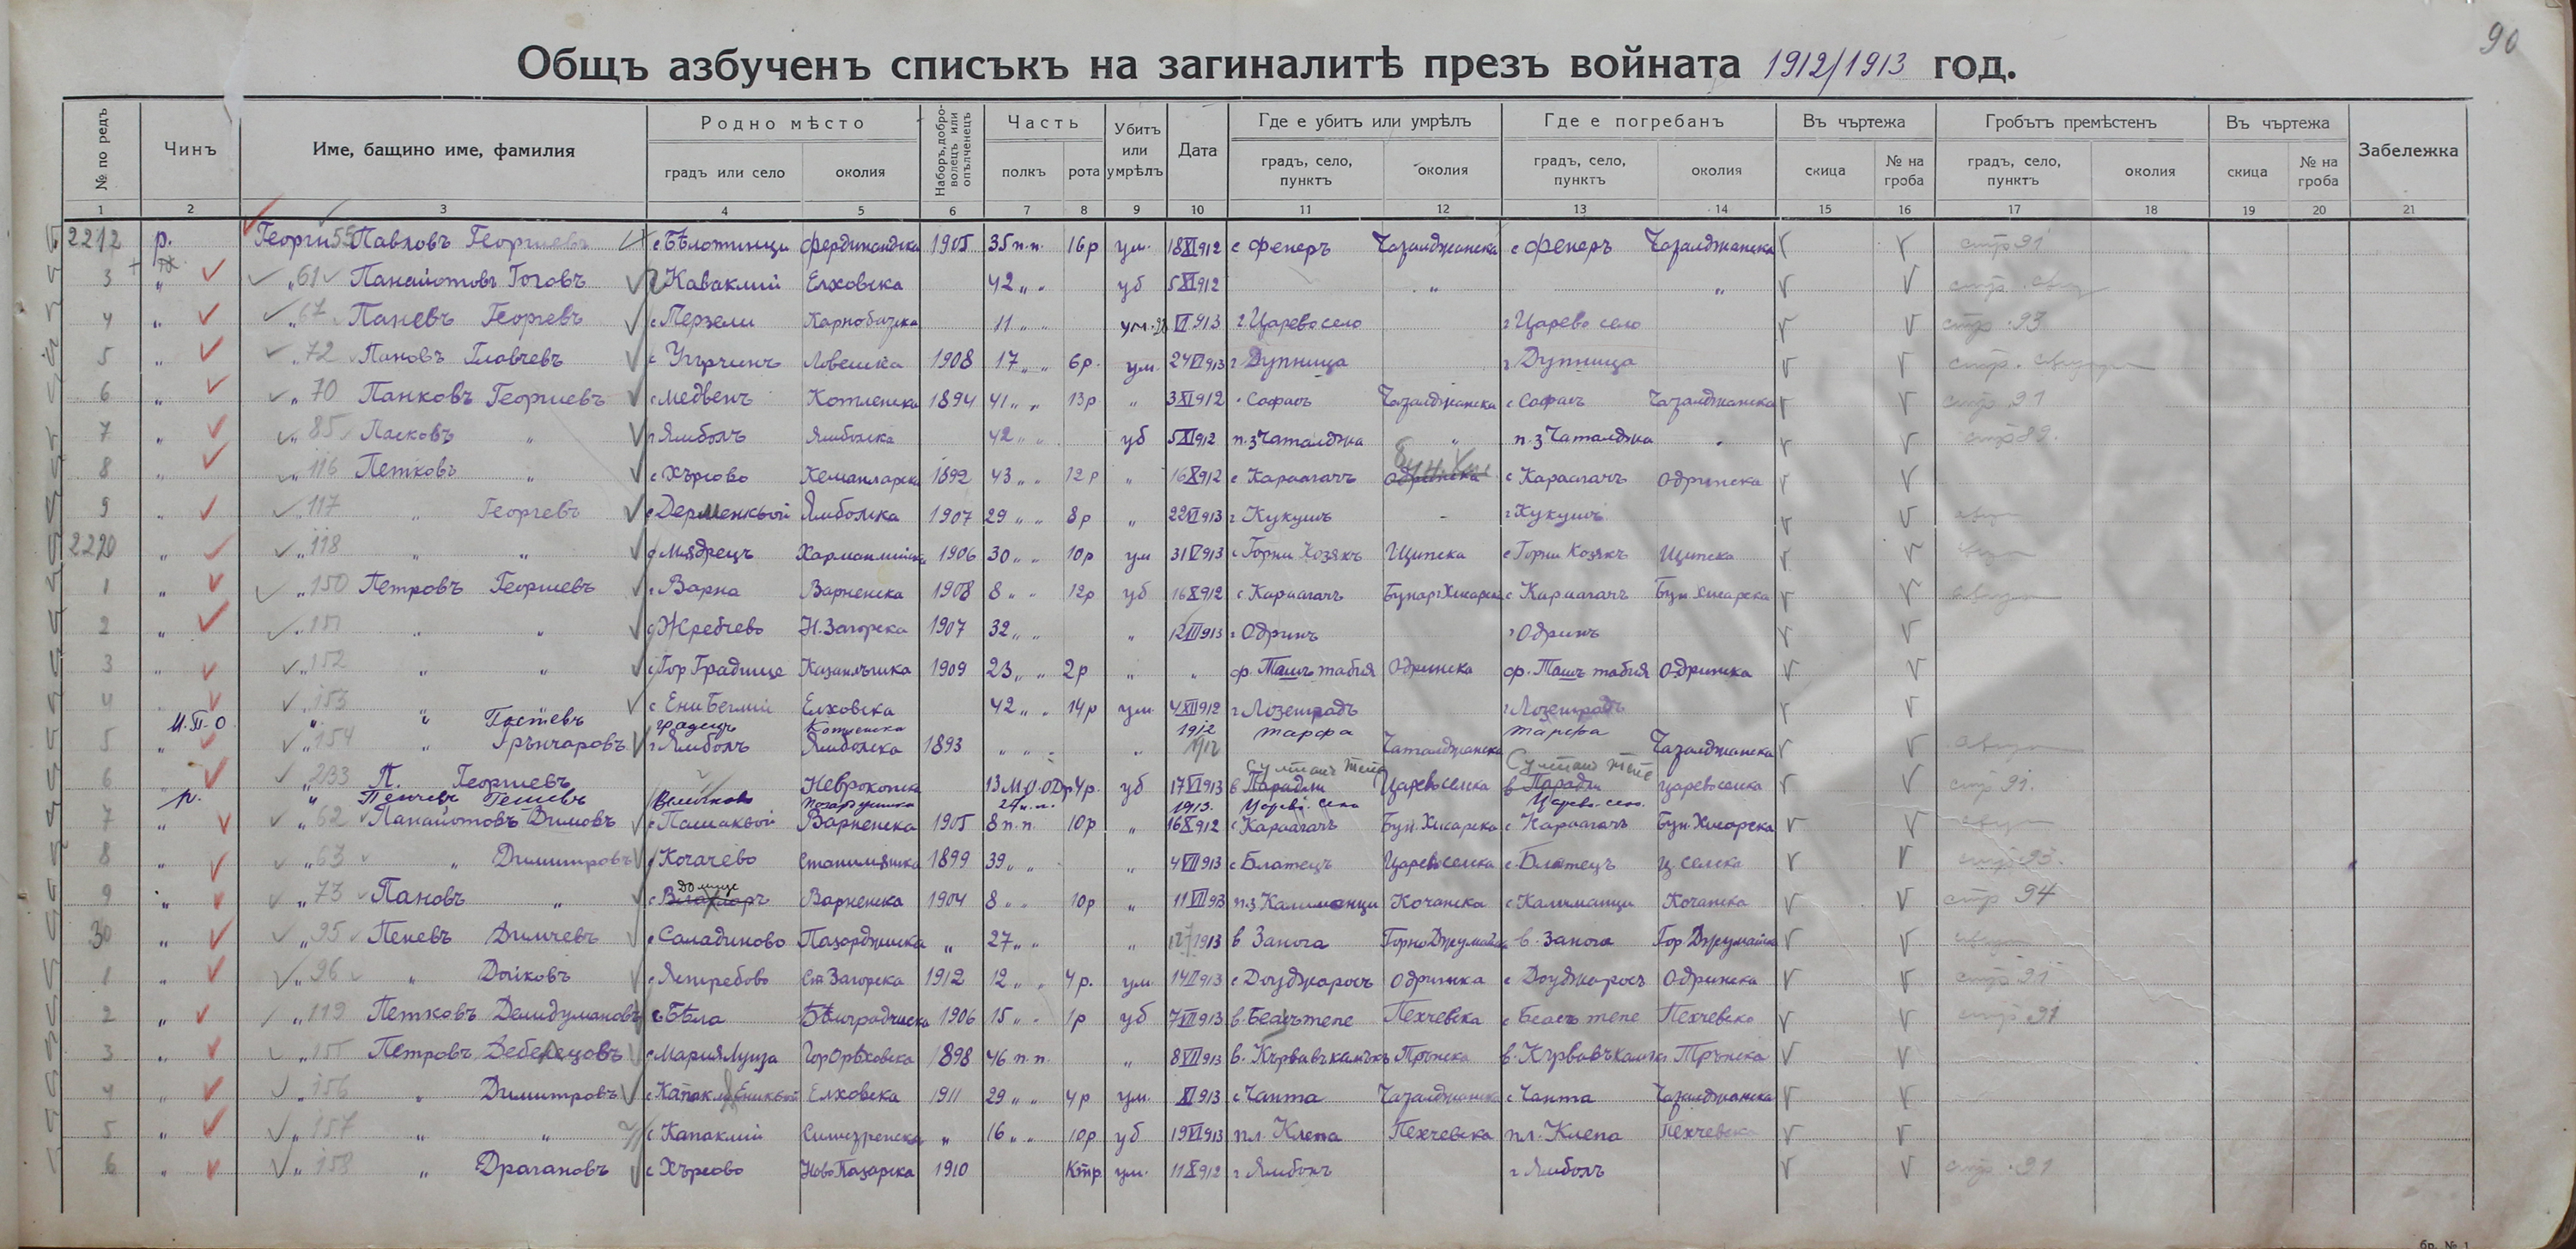 90
Общъ азбученъ списъкъ на загиналитѣ презъ войната 1912/1913 год.
№ по редъ | Чинъ | Име, бащино име, фамилия | Родно мѣсто | Наборъ, доброволецъ или опълченецъ | Часть | Убитъ или умрѣлъ | Дата | Где е убитъ или умрѣлъ | Где е погребанъ | Въ чъртежа | Гробътъ премѣстенъ | Въ чъртежа | Забележка
градъ или село | околия | полкъ | рота | градъ, село, пунктъ | околия | градъ, село, пунктъ | околия | скица | № на гроба | градъ, село, пунктъ | околия | скица | № на гроба
1 2 3 4 5 6 7 8 9 10 11 12 13 14 15 16 17 18 19 20 21
2212 р. Георги 55 Павловъ Георгиевъ с Бѣлотинци Фердинандска 1905 35 п.п. 16 р ум. 18 XI 912 с Фенеръ Чаталджанска с Фенеръ Чаталджанска стр 91
3 " " 61 Панайотовъ Гоговъ Каваклий Елховска 42 " " уб 5 XI 912 " " стр.
4 " " 67 Паневъ Георгевъ с Терзели Карнобатска 11 " " ум. VI 913 г. Царево село г Царево село стр. 93
5 " " 72 Пановъ Главчевъ с Угърчинъ Ловешка 1908 17 " " 6 р. ум. 24 VI 913 г Дупница г Дупница стр.
6 " " 70 Панковъ Георгиевъ с Медвенъ Котленска 1894 41 " " 13 р " 3 XI 912 с Софасъ Чаталджанска с Софасъ Чаталджанска стр. 91
7 " " 85 Пасковъ " г Ямболъ Ямболска 42 " " уб 5 XI 912 п.з Чаталджа " п.з Чаталджа " стр 89.
8 " " 116 Петковъ " с Хърсово Кеманларска 1892 43 " " 12 р " 16 X 912 с Караагачъ Одринска с Караагачъ Одринска
9 " " 117 " Георгевъ с Дерменкьой Ямболска 1907 29 " " 8 р " 22 VI 913 г Кукушъ - г Кукушъ
2220 " " 118 " " с Мядрецъ Харманлийска 1906 30 " " 10 р ум 31 V 913 с Горни Козякъ Щипска с Горни Козякъ Щипска
1 " " 150 Петровъ Георгиевъ г Варна Варненска 1908 8 " " 12 р уб 16 X 912 с Караагачъ Бунар Хисарска с Караагачъ Бун. Хисарска
2 " " 151 " " с Жребчево Н. Загорска 1907 32 " " " 12 III 913 г Одринъ г Одринъ
3 " " 152 " " с Гор Градище Казанлъшка 1909 23 " " 2 р " " ф. Ташъ табия Одринска ф. Ташъ табия Одринска
4 " " 153 с Ени Беглий Елховска 42 " " 14 р ум. 4 XII 912 г Лозенградъ г Лозенградъ
М.П.О. " " Гостевъ градецъ Котленска 1912 тарфа тарфа
5 " " 154 " Грънчаровъ г Ямболъ Ямболска 1893 " " " " 1912 Чаталджанска Чаталджанска
6 " " 233 П. Георгиевъ Неврокопска 13 М.О.Др 4 р. уб 17 VI 913 Султанъ тепе в Парадли Царевоселска Султанъ тепе в Паради Царевоселска стр 91.
р. " Пенчевъ Гешевъ Величково Пазарджишка 27 п.п. 1913. Царево-село Царево-село.
7 " " 62 Панайотовъ Димовъ с Пашакьой Варненска 1905 8 п.п. 10 р " 16 X 912 с Караагачъ Бун. Хисарска с Караагачъ Бун. Хисарска
8 " " 63 " Димитровъ с Кочачево Станимашка 1899 39 " " " 4 VII 913 с Блатецъ Царевоселска с. Блатецъ Ц. селска стр 93.
9 " " 73 Пановъ " с Долище Варненска 1904 8 " " 10 р " 11 VII 93 п.з Калиманци Кочанска с Калиманци Кочанска стр 94
30 " " 95 Пеневъ Димчевъ с Саладиново Пазарджишка " 27 " " " 1913 в Занога Горно Джумайска в. Занога Гор. Джумайска
1 " " 96 " Дойковъ с Ястребово Ст Загорска 1912 12 " " 4 р. ум. 14 II 913 с Доуджаросъ Одринска с Доуджаросъ Одринска стр 91
2 " " 119 Петковъ Делидумановъ с Бѣла Бѣлградчишка 1906 15 " " 1 р уб 7 VII 913 в. Беасътепе Пехчевска с Беасъ тепе Пехчевска стр 91
3 " " 155 Петровъ Дебелецовъ с Мария Луиза Гор Орѣховска 1898 46 п.п. " 8 VII 913 в. Кървавъ камъкъ Трънска в. Кървавъ камъкъ Трънска
4 " " 156 " Димитровъ Елховска 1911 29 " " 4 р ум. XI 913 с Чанта Чаталджанска с Чанта Чаталджанска
5 " " 157 " " с Капаклий Симеренска " 16 " " 10 р уб 19 VI 913 пл. Клепа Пехчевска пл. Клепа Пехчевска
6 " " 158 " Драгановъ с Хърсово Ново Пазарска 1910 Ктр. ум. 11 X 912 г Ямболъ г Ямболъ стр. 91
бр. № 1